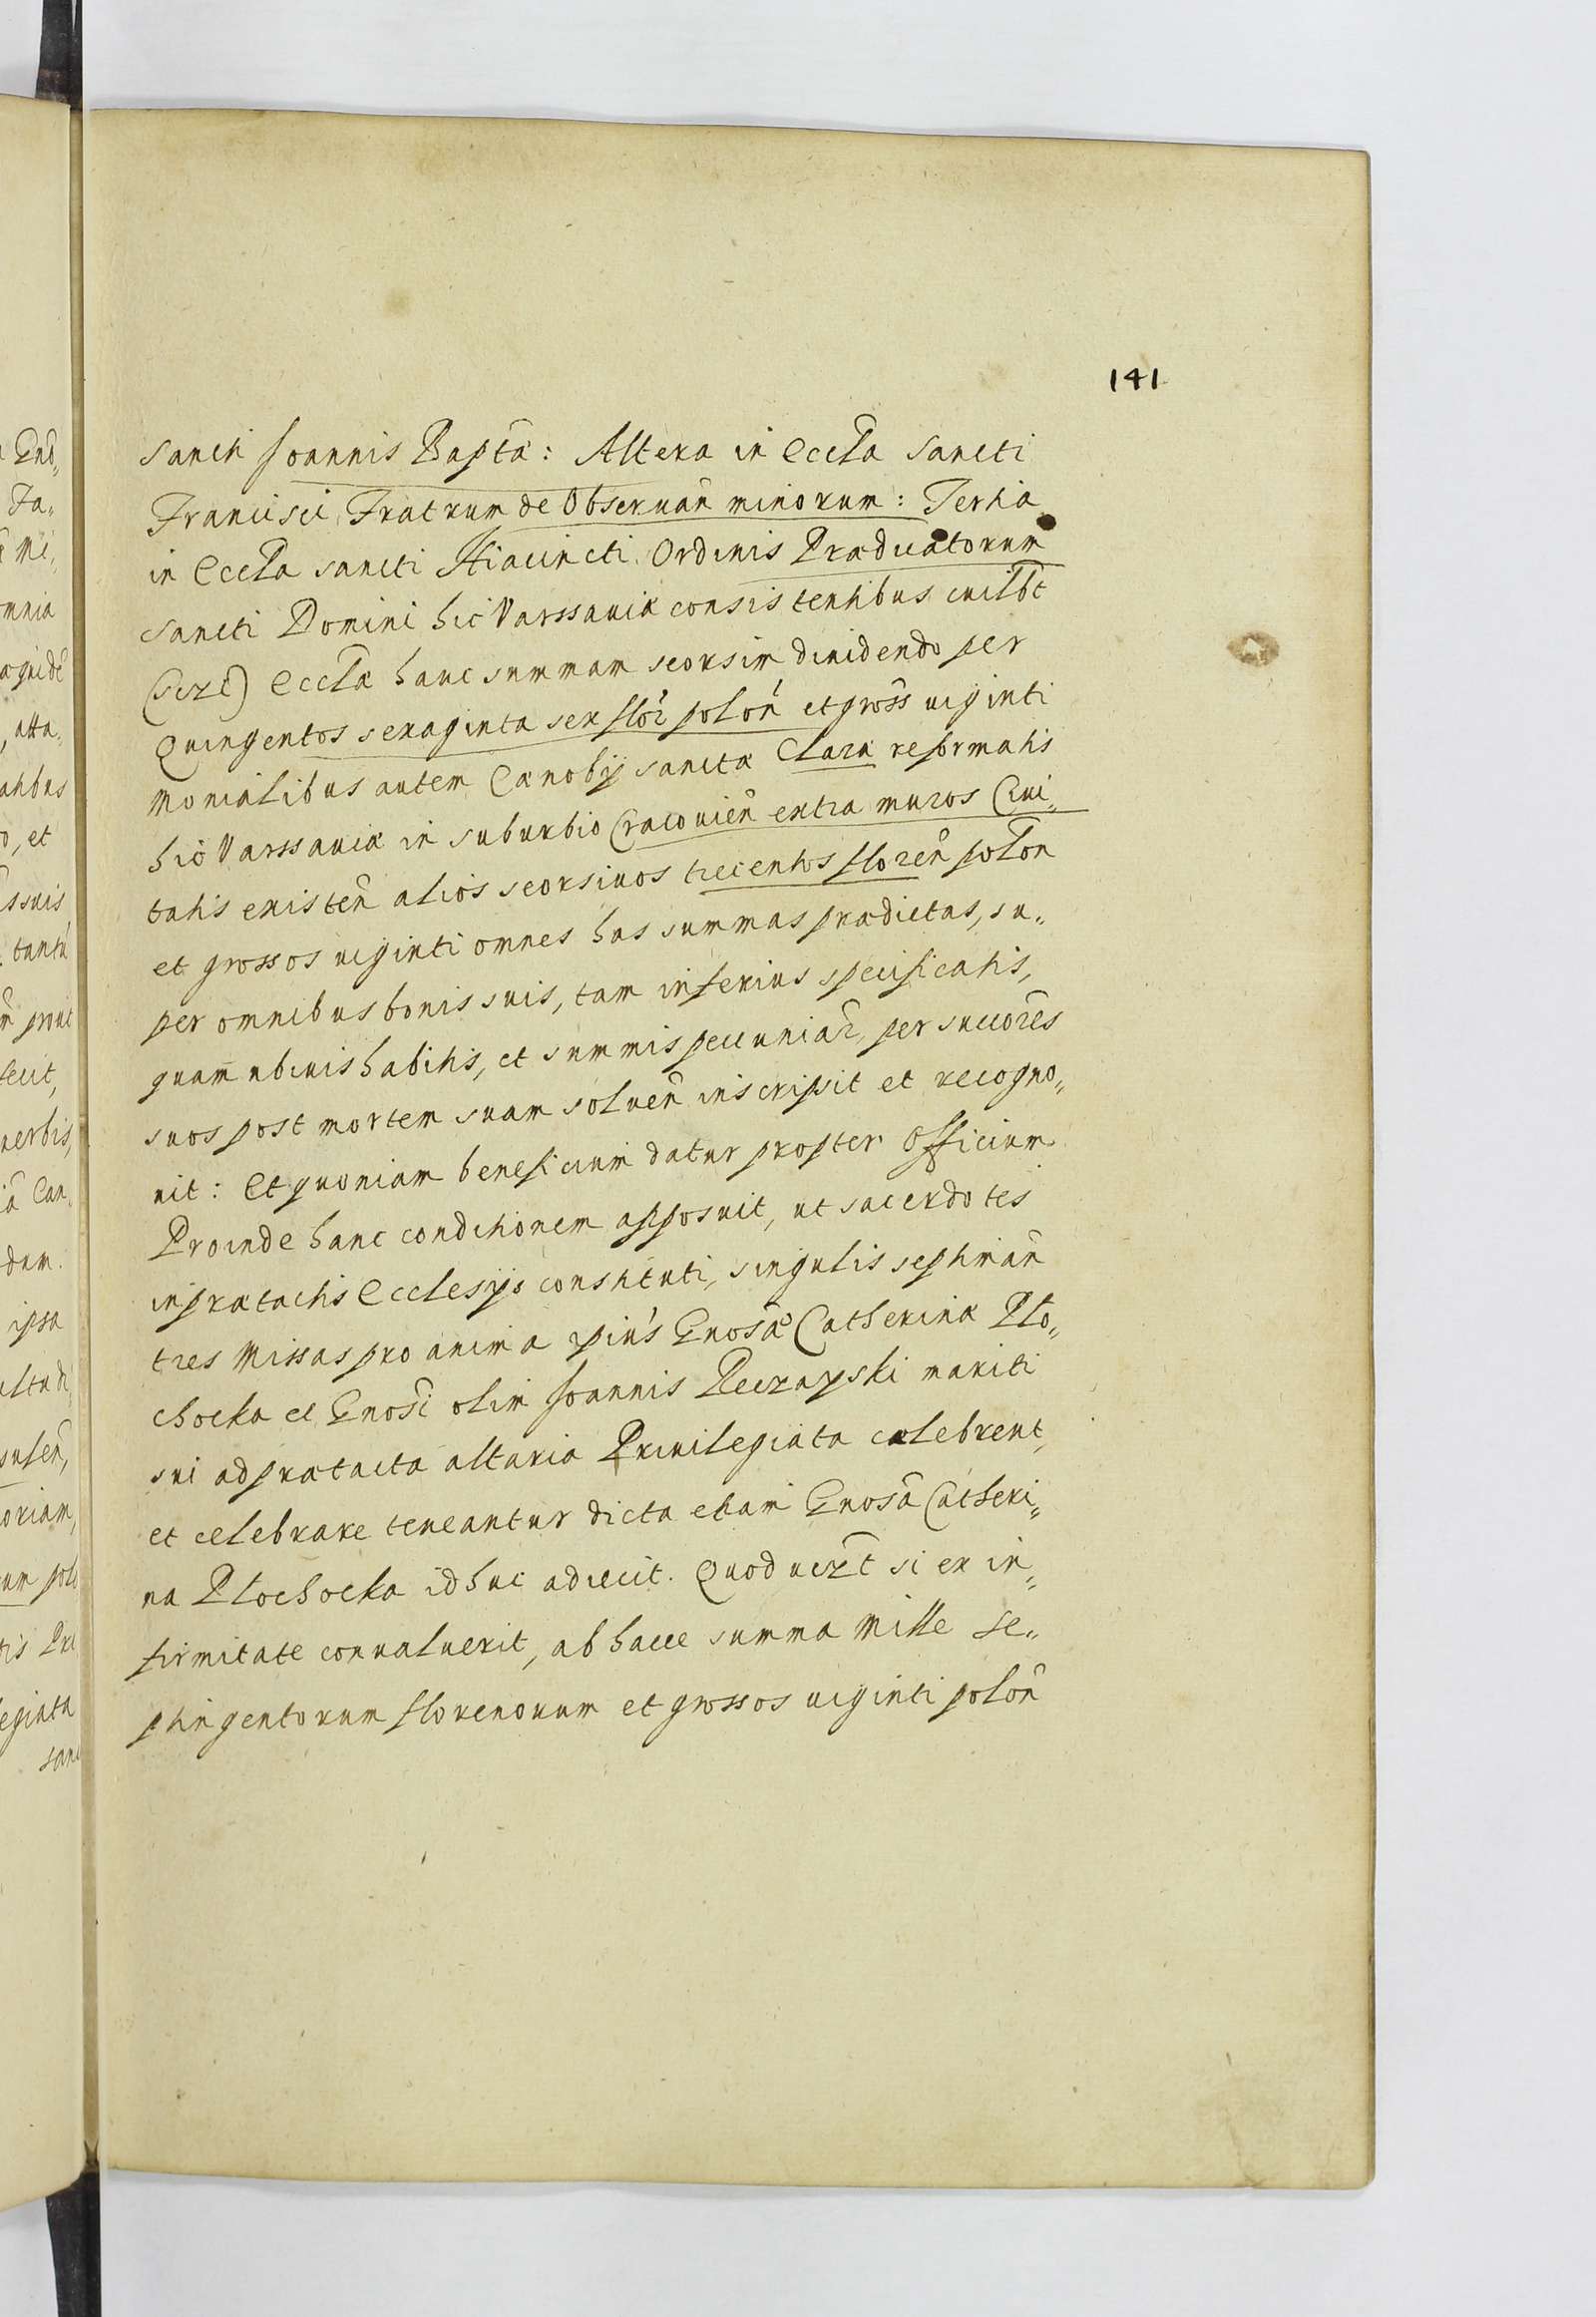 141
sancti Joannis Baptã: Altera in Eccl̃a sancti
Francisci Fratrum de Obseruañ minorum: Tertia
in Eccl̃a sancti Hiacincti Ordinis Prædicatorum
sancti Domini hic Varssauiæ consistentibus cuilb̃t
(scz̃t) Eccl̃æ hanc summam seorsim diuidendo per
Quingentos sexaginta sex flor̃ poloń et gros̃s uiginti
Monialibus autem Cænobij sanctæ Claræ reformatis
hic Varssauiæ in suburbio Cracouień extra muros Ciui„
tatis existeñ alios seorsiuos trecentos floreñ poloñ
et grossos uiginti omnes has summas prædictas, su„
per omnibus bonis suis, tam inferius specificatis,
quam ubiuis habitis, et summis pecuniar̃, per succor̃es
suos post mortem suam solueñ inscripsit et recogno„
uit: Et quoniam beneficium datur propter Officium
Proinde hanc conditionem apposuit, ut sacerdotes
in prætactis Ecclesijs constituti, singulis septimañ
tres Missas pro anima ipiús Gnosæ̃ Catherinæ Plo„
chocka et Gnosĩ olim Joannis Pieczayski mariti
sui ad prætacta altaria Priuilegiata celebrent,
et celebrare teneantur dicta etiam Gnosã Catheri„
na Plochocka id huc adiecit. Quod uerz̃t si ex in„
firmitate conualuerit, ab hacce summa Mille se„
ptingentorum florenorum et grossos uiginti poloñ